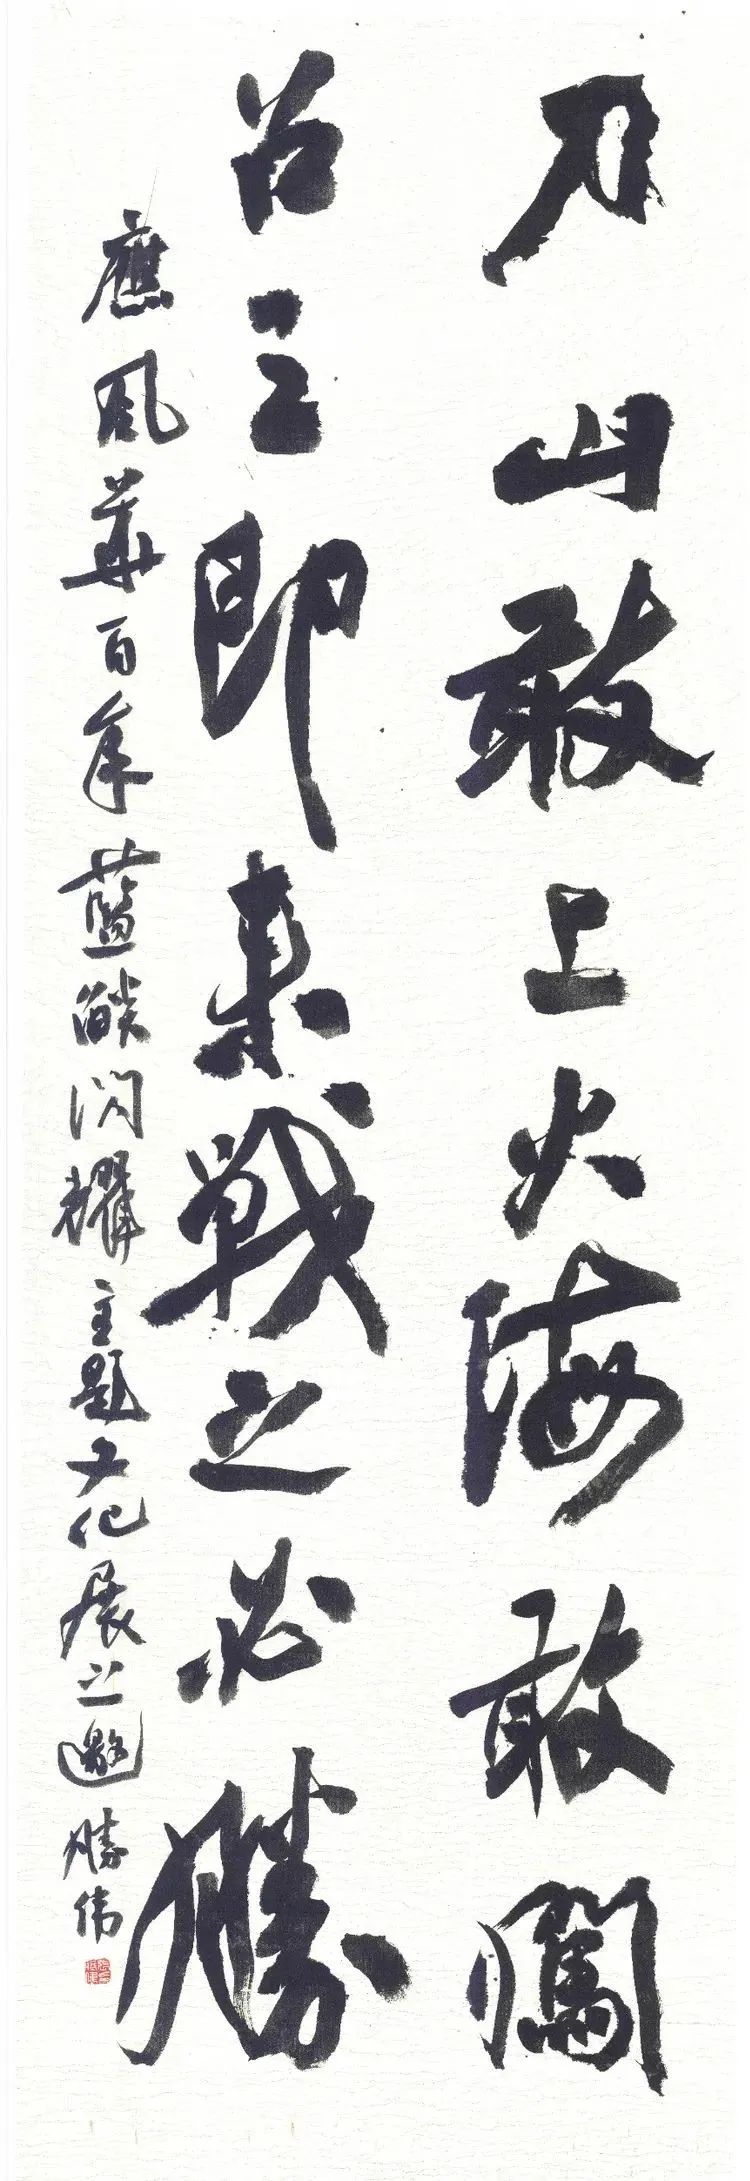 刀山敢上火海敢闖
召之即來戰之必勝
應風華百年藍燄閃耀主題文化展之邀勝偉